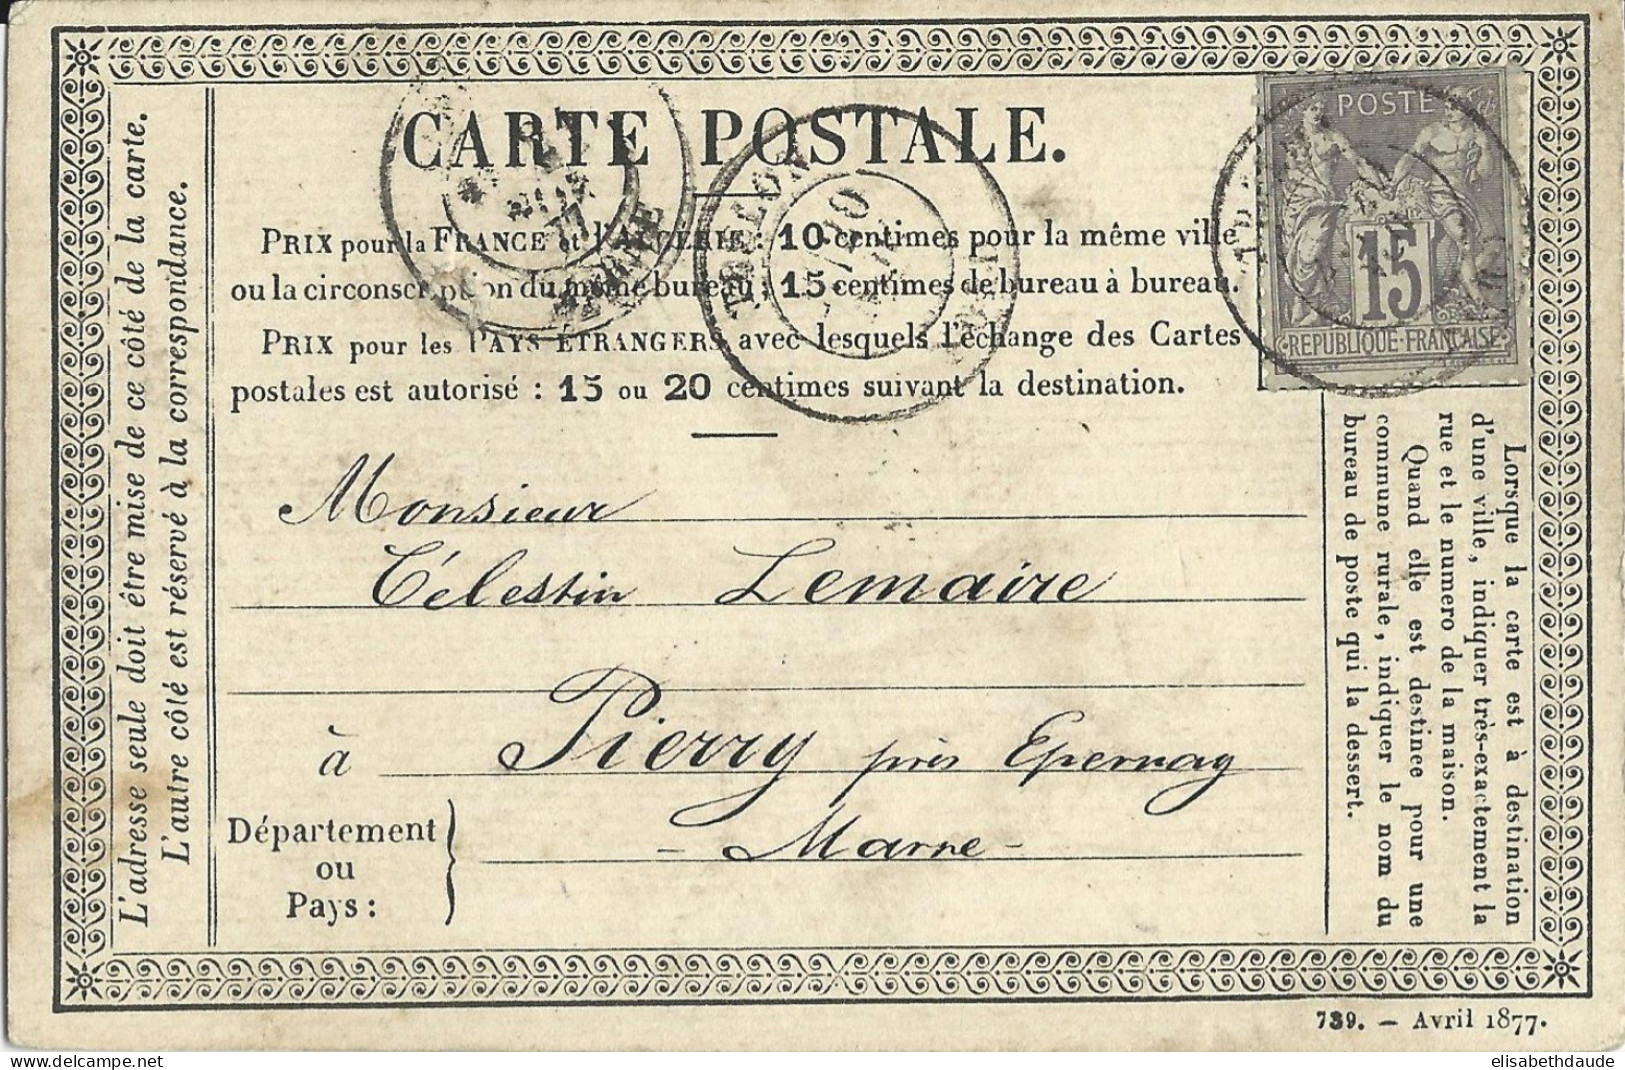 CARTE POSTALE.
PRIX pour la FRANCE et l'ALGÉRIE : 10 centimes pour la même ville
ou la circonscription du même bureau ; 15 centimes de bureau à bureau.
PRIX pour les PAYS ÉTRANGERS avec lesquels l'échange des Cartes
postales est autorisé : 15 ou 20 centimes suivant la destination.
POSTE
15
REPUBLIQUE FRANÇAISE
TOULON
77
L'adresse seule doit être mise de ce côté de la carte.
L'autre côté est réservé à la correspondance.
Monsieur
Célestin Lemaire
à Pierry près Epernay
Département
ou
Pays :
- Marne -
Lorsque la carte est à destination
d'une ville, indiquer très-exactement la
rue et le numero de la maison.
Quand elle est destinee pour une
commune rurale, indiquer le nom du
bureau de poste qui la dessert.
739. - Avril 1877.
elisabethdaude